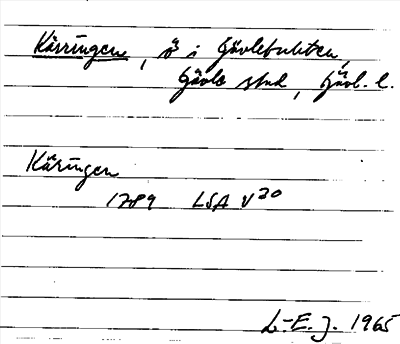 Kärringen, ö i Gävlebukten,
Gävle stad, Gävl. l.
Käringen
1789 LSA V 20
L-E. J. 1965